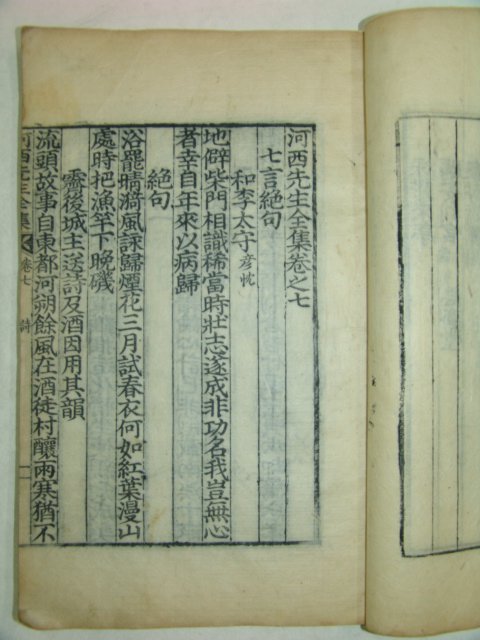 河西先生全集卷之七
七言絶句
和李太守彦忱
地僻柴門相識稀當時壯志遂成非功名我豈無心
者幸自年來以病歸
絶句
浴罷晴漪風詠歸煙花三月試春衣何如紅葉漫山
處時把漁竿下晚磯
霽後城主送詩及酒因用其韻
流頭故事自東都河朔餘風在酒徒村釀兩寒猶不
河西先生全集 卷七 詩 一